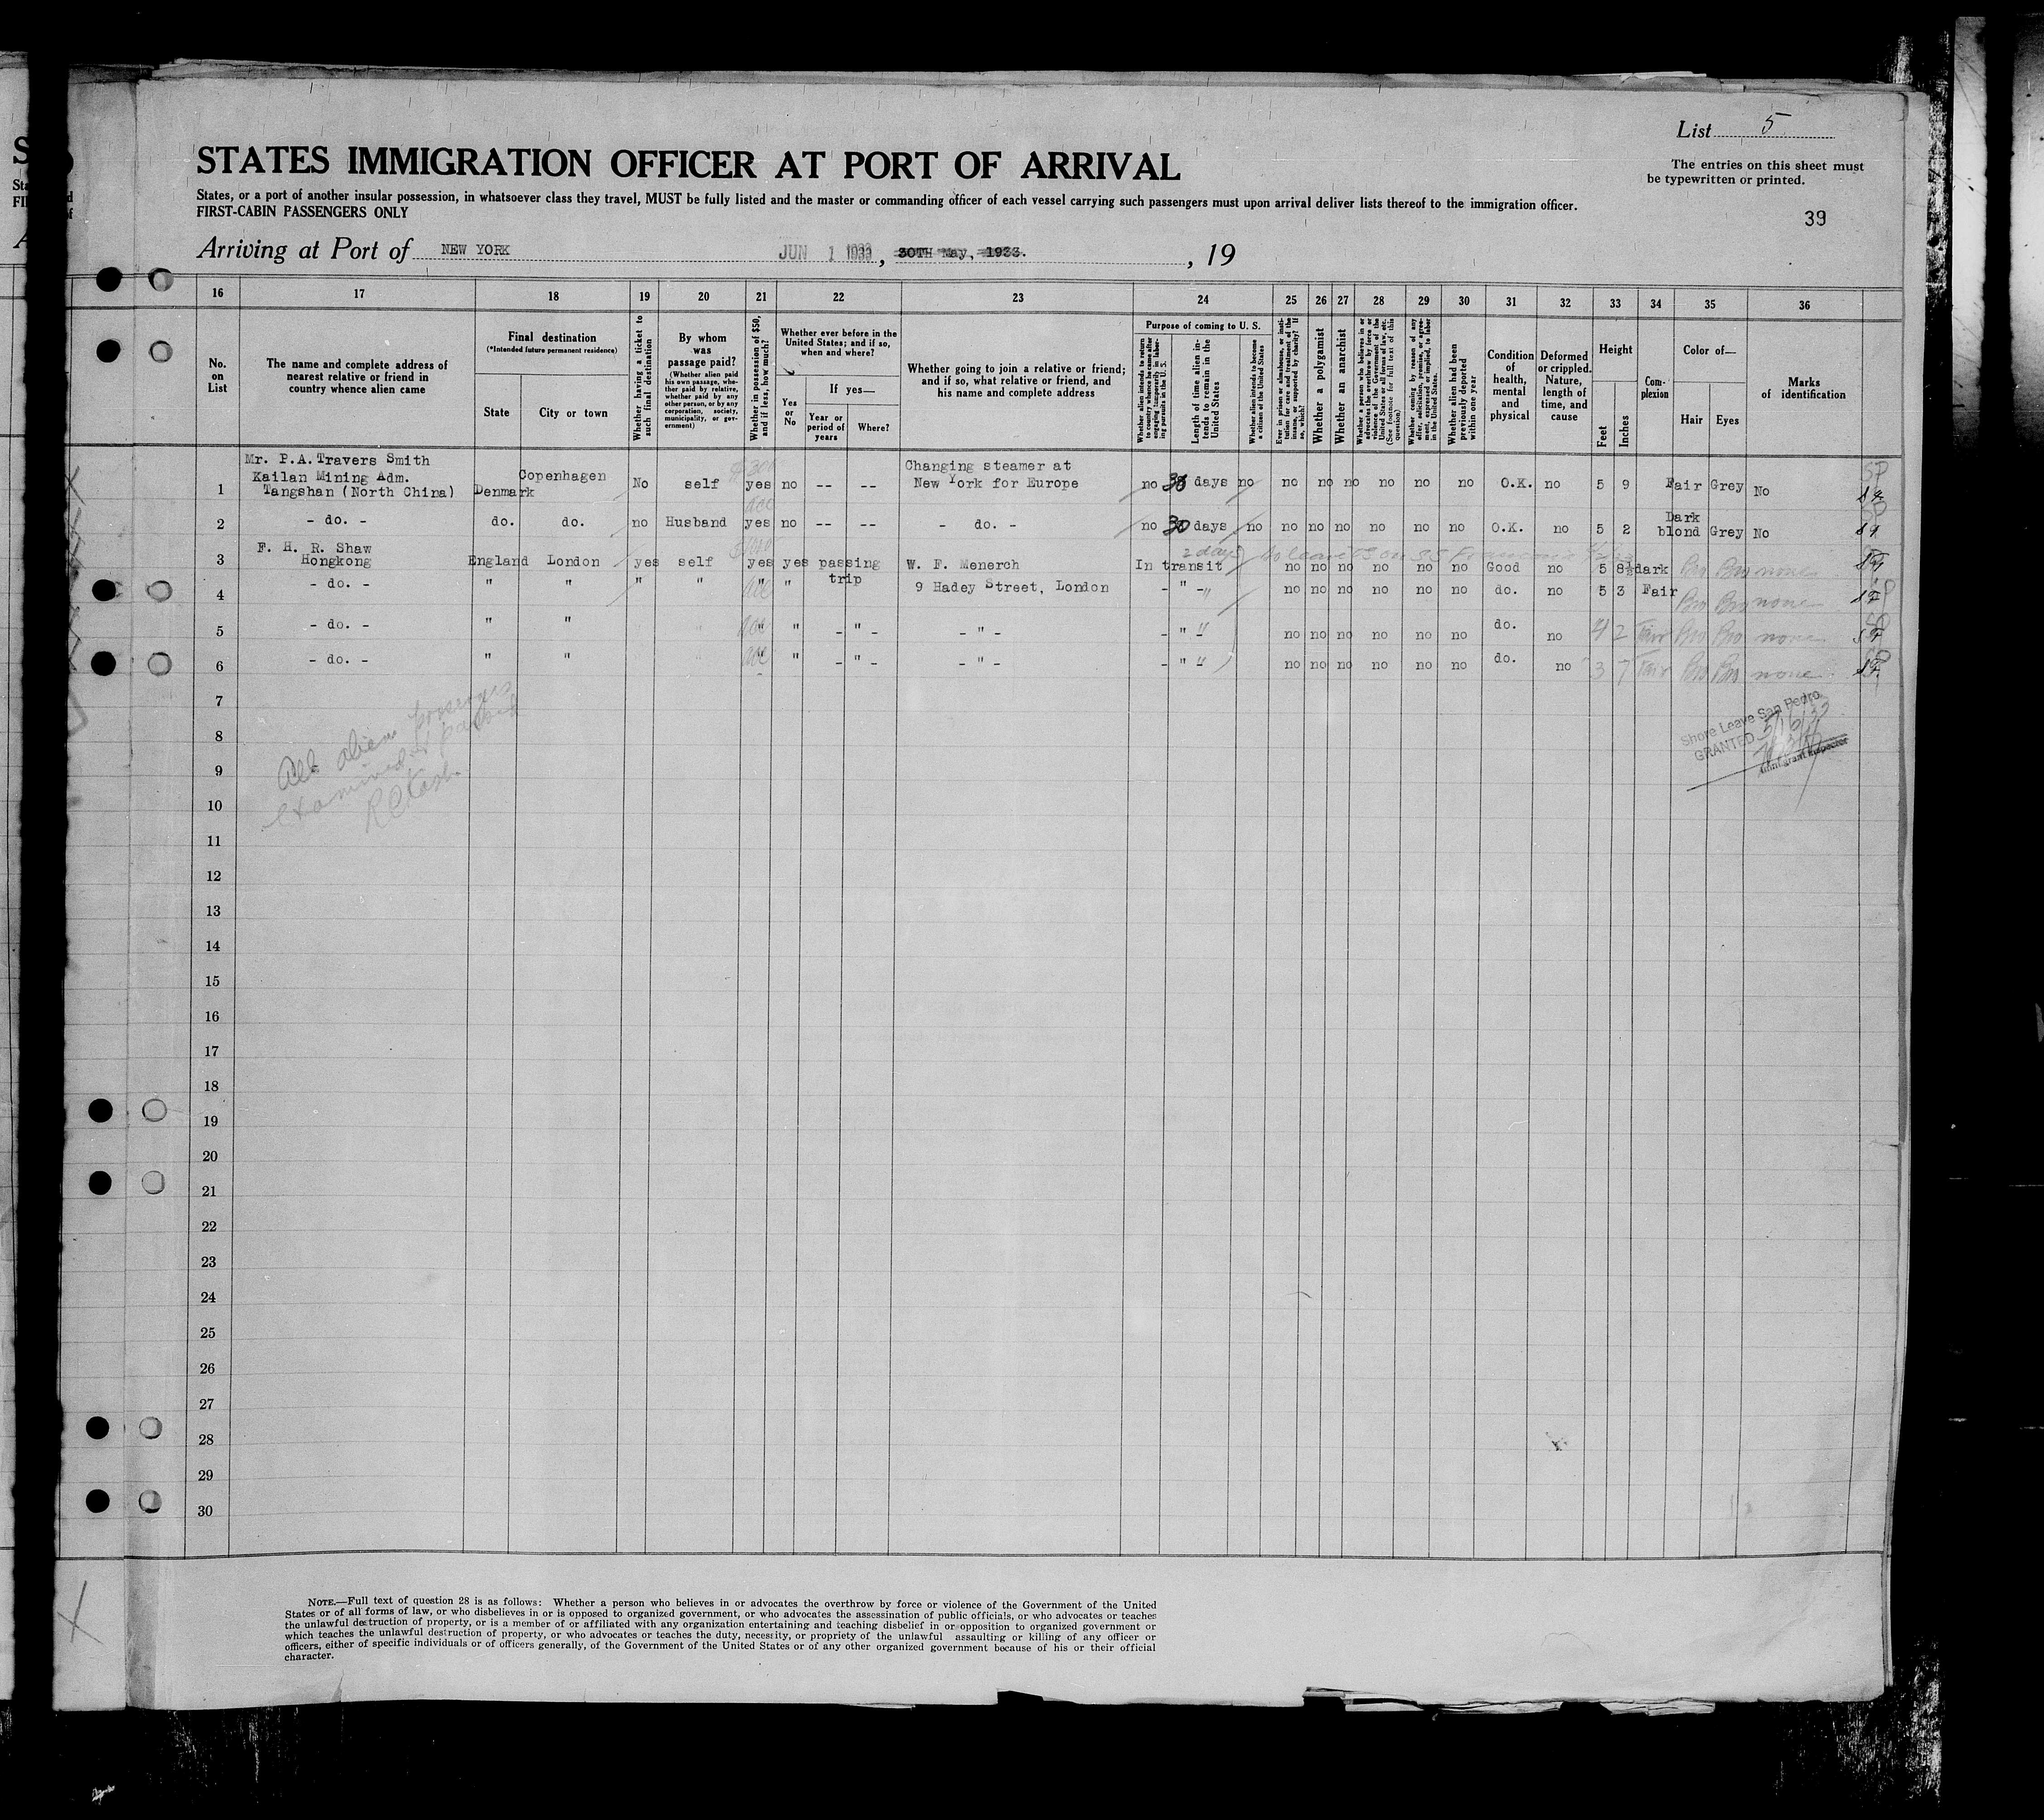 List 5
STATES IMMIGRATION OFFICER AT PORT OF ARRIVAL
The entries on this sheet must
be typewritten or printed.
States, or a port of another insular possession, in whatsoever class they travel, MUST be fully listed and the master or commanding officer of each vessel carrying such passengers must upon arrival deliver lists thereof to the immigration officer.
FIRST-CABIN PASSENGERS ONLY
39
Arriving at Port of NEW YORK JUN 1 1933, 30TH May, 1933. , 19
16 17 18 19 20 21 22 23 24 25 26 27 28 29 30 31 32 33 34 35 36
No. on List
The name and complete address of nearest relative or friend in country whence alien came
Final destination
(*Intended future permanent residence)
State
City or town
Whether having a ticket to such final destination
By whom was passage paid?
(Whether alien paid his own passage, whether paid by relative, whether paid by any other person, or by any corporation, society, municipality, or government)
Whether in possession of $50, and if less, how much?
Whether ever before in the United States; and if so, when and where?
Yes or No
If yes—
Year or period of years
Where?
Whether going to join a relative or friend; and if so, what relative or friend, and his name and complete address
Purpose of coming to U. S.
Whether alien intends to return to country whence he came after engaging temporarily in laboring pursuits in the U. S.
Length of time alien intends to remain in the United States
Whether alien intends to become a citizen of the United States
Ever in prison or almshouse, or institution for care and treatment of the insane, or supported by charity? If so, which?
Whether a polygamist
Whether an anarchist
Whether a person who believes in or advocates the overthrow by force or violence of the Government of the United States or all forms of law, etc. (See footnote for full text of this question)
Whether coming by reason of any offer, solicitation, promise, or agreement, expressed or implied, to labor in the United States
Whether alien had been previously deported within one year
Condition of health, mental and physical
Deformed or crippled. Nature, length of time, and cause
Height
Feet
Inches
Complexion
Color of—
Hair
Eyes
Marks of identification
Mr. P.A. Travers Smith
Kailan Mining Adm.
1 Tangshan (North China) Denmark Copenhagen No self yes no -- -- Changing steamer at New York for Europe no 30 days no no no no no no no O.K. no 5 9 Fair Grey No
2 - do. - do. do. no Husband yes no -- -- - do. - no 30 days no no no no no no no O.K. no 5 2 Dark blond Grey No
F. H. R. Shaw
3 Hongkong England London yes self yes yes passing trip W. F. Menerch In transit 2 days no no no no no no Good no 5 8½ dark Bro Bro none
4 - do. - " " " " " " 9 Hadey Street, London - " - no no no no no no do. no 5 3 Fair Bro Bro none
5 - do. - " " " " - " - - " - - " - no no no no no no do. no 4 2 Fair Bro Bro none
6 - do. - " " " " - " - - " - - " - no no no no no no do. no 3 7 Fair Bro Bro none
7
8
9
10
11
12
13
14
15
16
17
18
19
20
21
22
23
24
25
26
27
28
29
30
All alien
examined
Shore Leave San Pedro
GRANTED
Immigrant Inspector
NOTE.—Full text of question 28 is as follows: Whether a person who believes in or advocates the overthrow by force or violence of the Government of the United
States or of all forms of law, or who disbelieves in or is opposed to organized government, or who advocates the assassination of public officials, or who advocates or teaches
the unlawful destruction of property, or is a member of or affiliated with any organization entertaining and teaching disbelief in or opposition to organized government or
which teaches the unlawful destruction of property, or who advocates or teaches the duty, necessity, or propriety of the unlawful assaulting or killing of any officer or
officers, either of specific individuals or of officers generally, of the Government of the United States or of any other organized government because of his or their official
character.